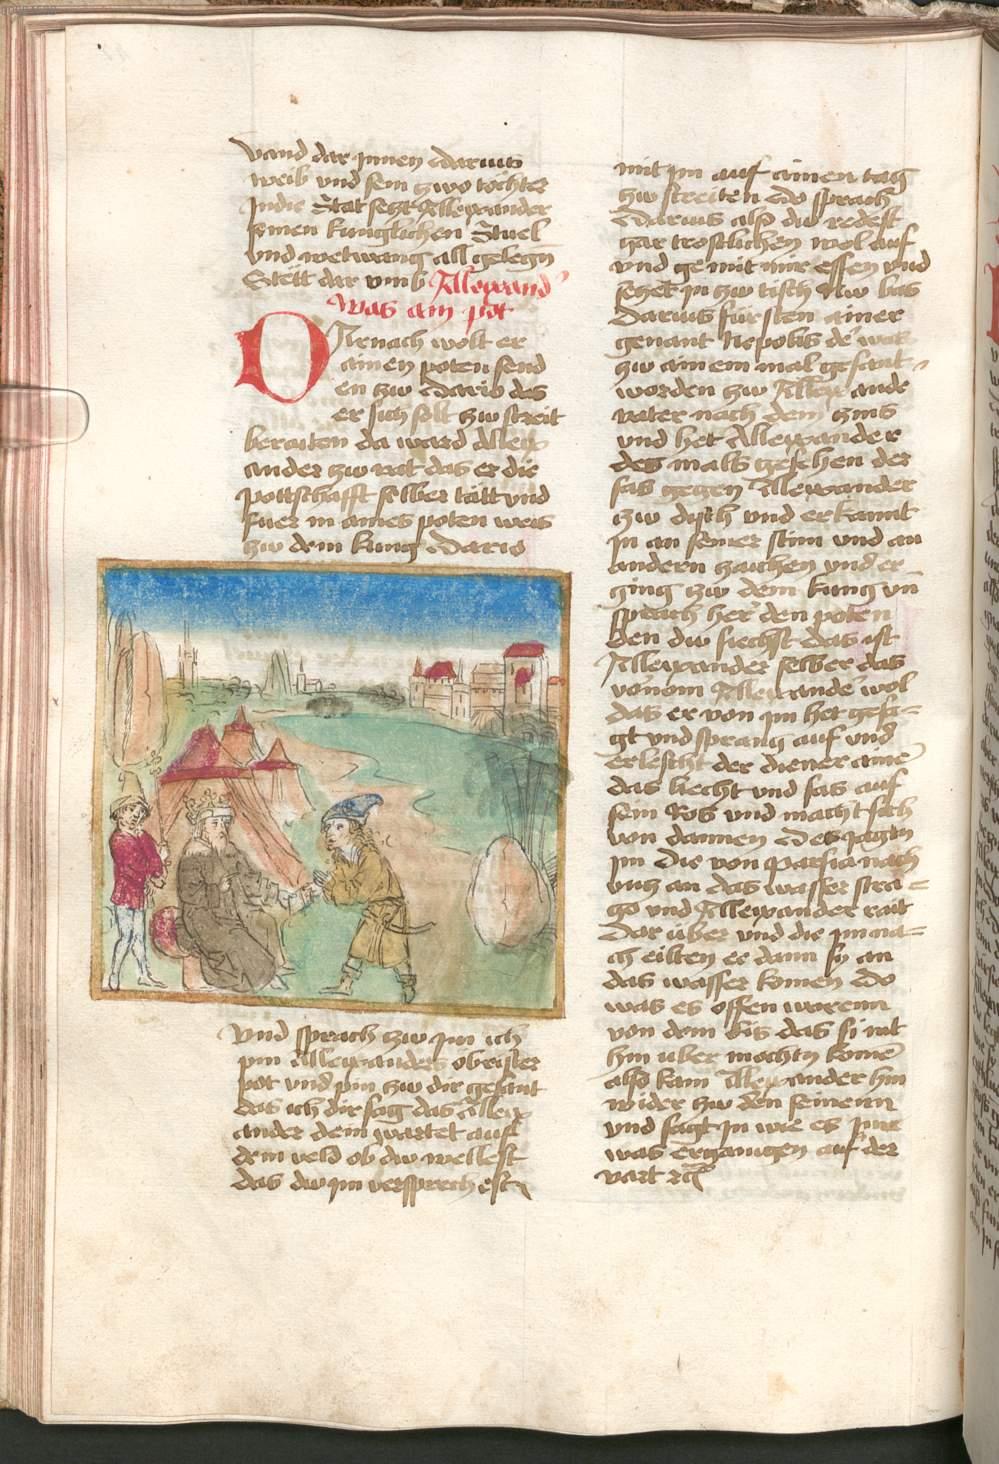 vand dar jnnen darius
weib vnd sein zwo tochter
Jn die Stat setzt Allexander
seinen kunglichen Stuel
vnd wetwang all gelegn
Stett dar vmb Allexand'
Was ain pot
Dirnach wolt er
ainen poten send
en zw dario das
er sich solt zw streit
beraiten da ward Allex
ander zw rat das er die
pottschafft selber tätt vnd
fuer in aines poten weis
zw dem kung dario
Vnd sprach zw jm ich
pin Allexanders obrister
pot vnd pin zw dir gesant
das ich dir sag das Allex
ander dein wartet auff
dem veld ob dw wellest
das dw jm versprechest
mit jm auf ainen tag
zw streiten do sprach
darius also dw redest
gar trostlichen wol auf
vnd ge mit mir essen vnd
setzet jn zw tisch Nw las
darius fürsten ainer
genant Nepolis de' was
zw ainem mal gesant
worden zw Allexande
vater nach dem zins
vnd het Allexander
des mals gesehen der
sas gegen Allexander
zw disch vnd erkannt
jn an seiner stim vnd an
andern zaichen vnd er
ging zw dem kung vn
sprach her' den poten
den dw siechst das ist
Allexander selber das
vernom Allexande' wol
das er von jm het gesa=
gt vnd sprang auf vnd
erlescht der diener aine
das liecht vnd sas auf
sein Ros vnd macht sich
von dannen Des jagtn
jm die von parsia nach
vntz an das wasser stra=
go vnd Allexander rait
dar über vnd die jm na=
ch eilten er dann sy an
das wasser komen do
was es offen worenn
von dem eis das si nit
hin über mochtn komen
also kam Allexander hin
wider zw den seinenn
vnd sagt jn wie es jme
was ergangen auf der
vart